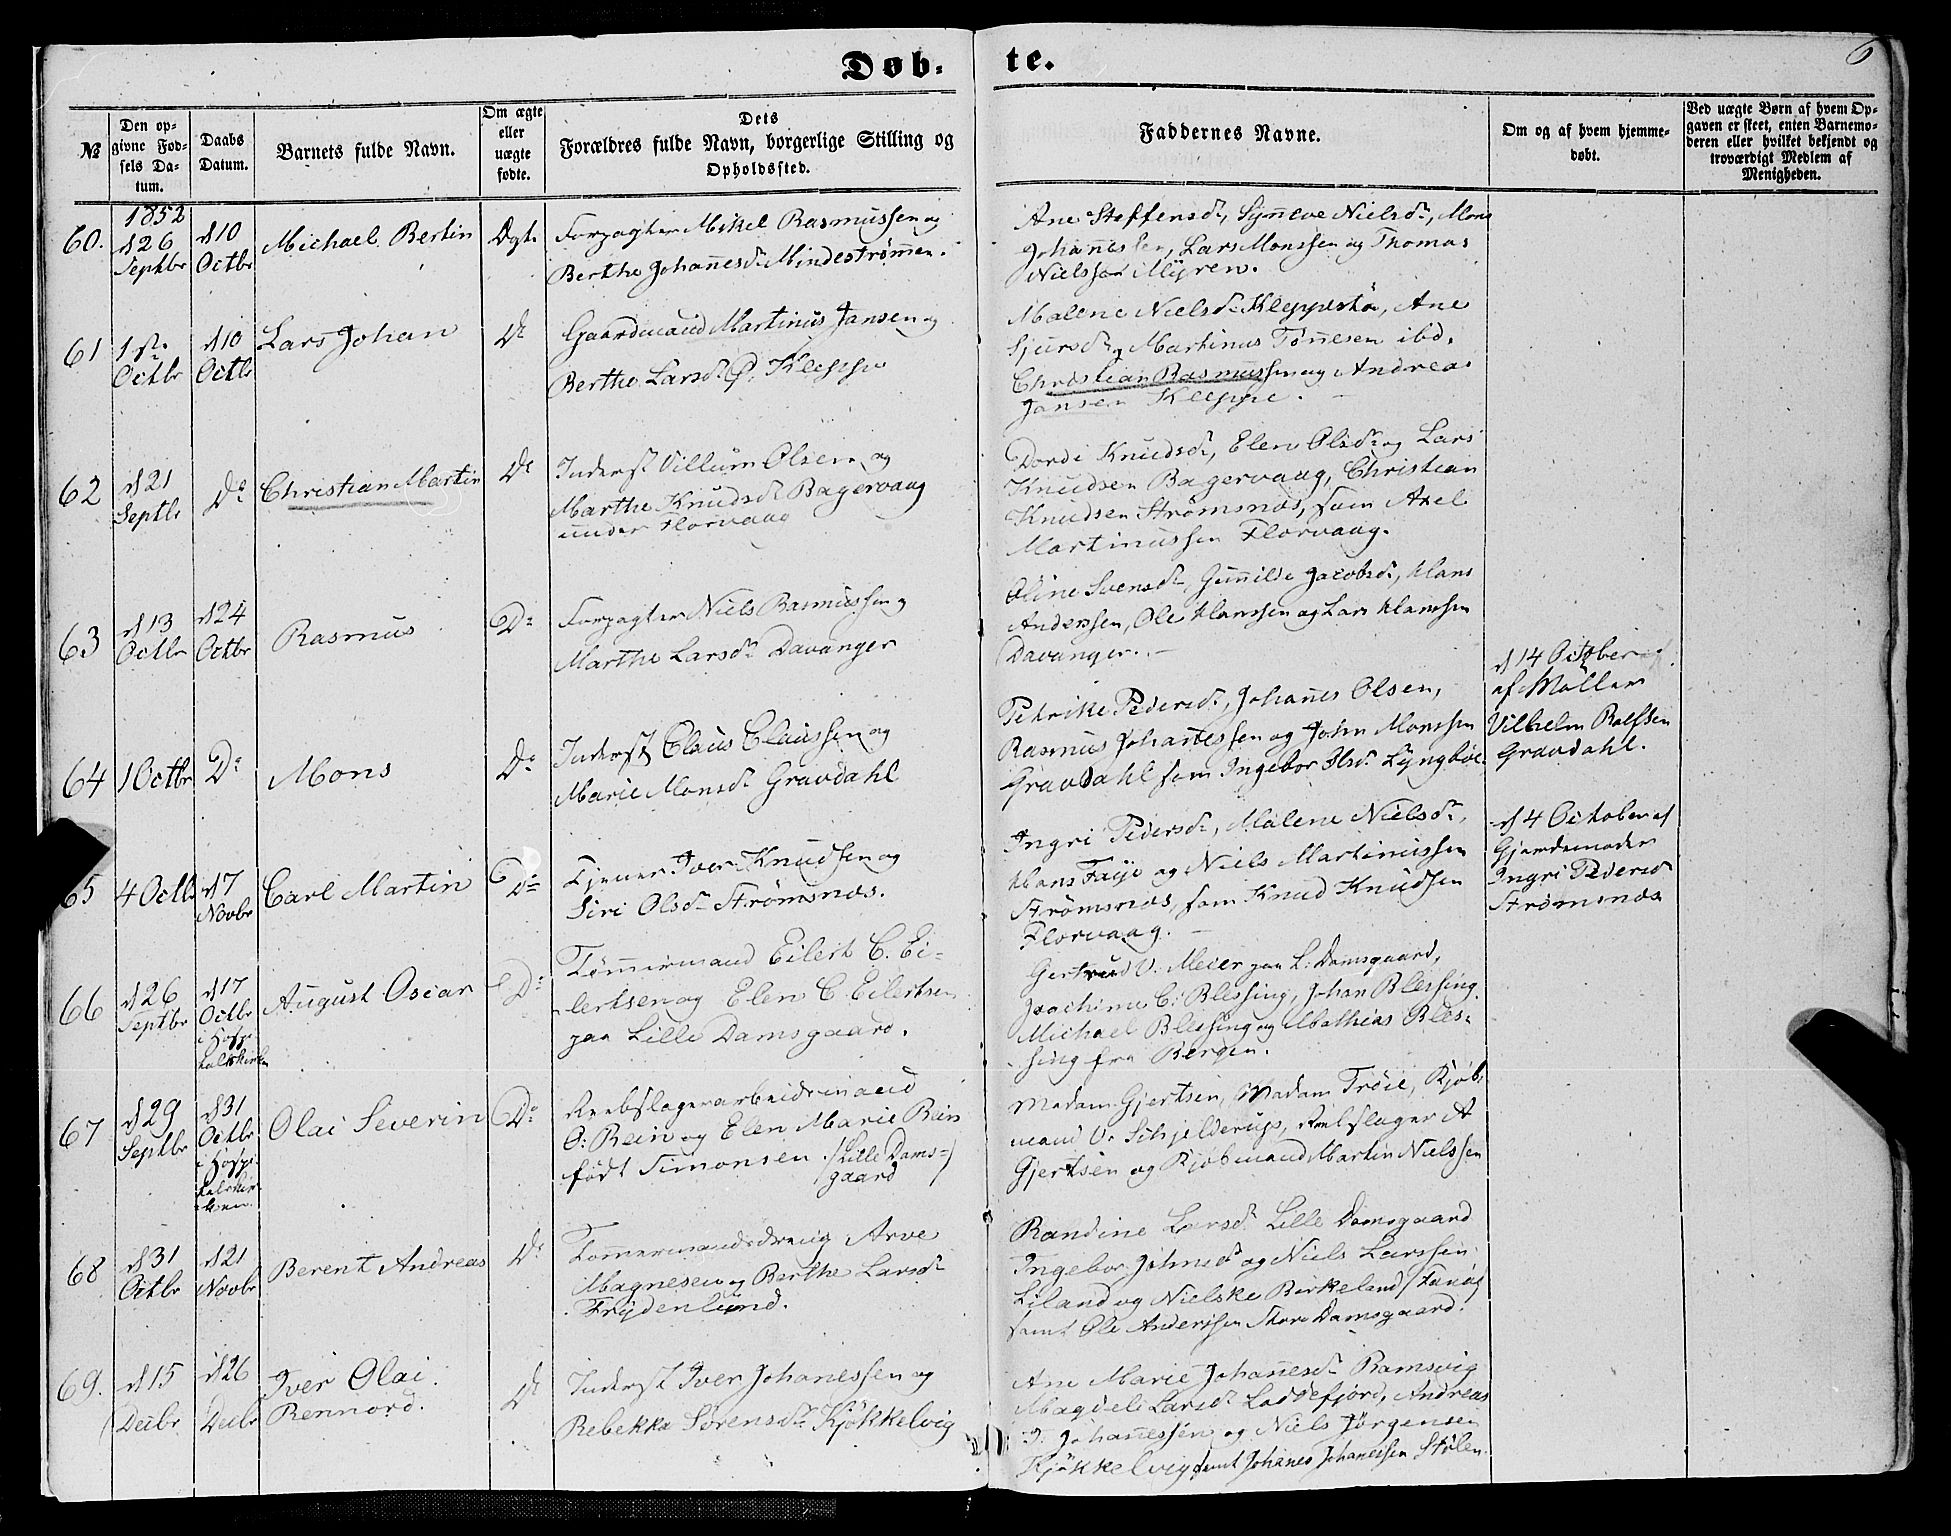 Døb-
te.
6
№
Den op-
givne Fød-
sels Da-
tum.
Daabs
Datum.
Barnets fulde Navn.
Om ægte
eller
uægte
fødte.
Dets
Forældres fulde Navn, borgerlige Stilling og
Opholdssted.
Faddernes Navne.
Om og af hvem hjemme-
døbt.
Ved uægte Børn af hvem Op-
gaven er skeet, enten Barnemo-
deren eller hvilket bekjendt og
troværdigt Medlem af
Menigheden.
1852
60.
d 26
Septbr
d 10
Octbr
Michael Bertin
Ægte
Forpagter Mikel Rasmussen og
Berthe Johannesdr Mindeströmmen.
Ane Steffensdr, Synneve Nielsdr, Mons
Johannessen, Lars Monssen og Thomas
Nielssen Myren.
61
1ste
Octbr
d 10
Octbr
Lars Johan
Do
Gaardmand Martinus Jansen og
Berthe Larsdr Ø. Kleppe
Malene Nielsdr Kleppestø, Ane
Sjursdr, Martinus Tönnesen ibd.
Christian Rasmussen og Andreas
Jansen Kleppe.
62
d 21
Septbr
Do
Christian Martin
Do
Inderst Villum Olsen og
Marthe Knudsdr Bagervaag
under Florvaag
Dordi Knudsdr, Elen Olsdr og Lars
Knudsen Bagervaag, Christian
Knudsen Strømsnæs, sam Axel
Martinussen Florvaag.
63
d 13
Octbr
d 24
Octbr
Rasmus
Do
Forpagter Niels Rasmussen og
Marthe Larsdr Davanger
Oline Svensdr, Gunnilde Jacobsdr, Hans
Anderssen, Ole Hanssen og Lars Hanssen
Davanger.
64
1 Octbr
Do
Mons
Do
Inderst Claus Claussen og
Marie Monsdr Gravdahl
Petrike Pedersdr, Johannes Olsen,
Rasmus Johannessen og John Monssen
Gravdahl sam Ingebor Olsdr Lyngböe.
d 14 October
af Møller
Vilhelm Rolfsen
Gravdahl.
65
4 Octb
d 7
Novbr
Carl Martin
Do
Tjener Iver Knudsen og
Siri Olsdr Strømsnæs.
Ingri Pedersdr, Malene Nielsdr,
Hans Faye og Niels Martinussen
Strømsnæs, sam Knud Knudsen
Florvaag.
d 4 October af
Gjordemoder
Ingri Pedersd
Strømsnæs
66
d 26
Septbr
d 17
Octbr
i Hospi
talskirken
August Oscar
Do
Tømmermand Eilert C. Ei-
lertsen og Elen C. Eilertsen
paa Lille Damsgaard.
Gertrud V. Meier paa L. Damsgaard,
Joachime C. Blessing, Johan Blessing
Michael Blessing og Mathias Bles-
sing fra Bergen.
67
d 29
Septbr
d 31
Octbr
i Hospi-
talskir-
ken.
Olai Severin
Do
Reebslagerarbeidsmand
O: Rein og Elen Marie Rein
født Simonsen. (Lille Dams-
gaard)
Madam Gjertsen, Madam Tröie, Kjøb-
mand V. Schjelderup, Rebslager A
Gjertsen og Kjøbmand Martin Nielssen
68
d 31
Octbr
d 21
Novbr
Berent Andreas
Do
Tømermandsdreng Arve
Magnesen og Berthe Larsdr
Frydenlund.
Randine Larsdr Lille Damsgaard
Ingebor Johnsdr og Niels Larssen
Liland og Nielske Birkeland (Fanø)
samt Ole Anderssen Store Damsgaard.
69.
d 15
Decbr
d 26
Decbr
Iver Olai
Rennord.
Do
Inderst Iver Johannessen og
Rebekka Sørensdr Kjøkkelvig
Ane Marie Johannesdr Ramsvig
Magdeli Larsdr Loddefjord, Andreas
J. Johannessen og Niels Jörgensen
Kjøkkelvig samt Johanes Johanessen Stølen.